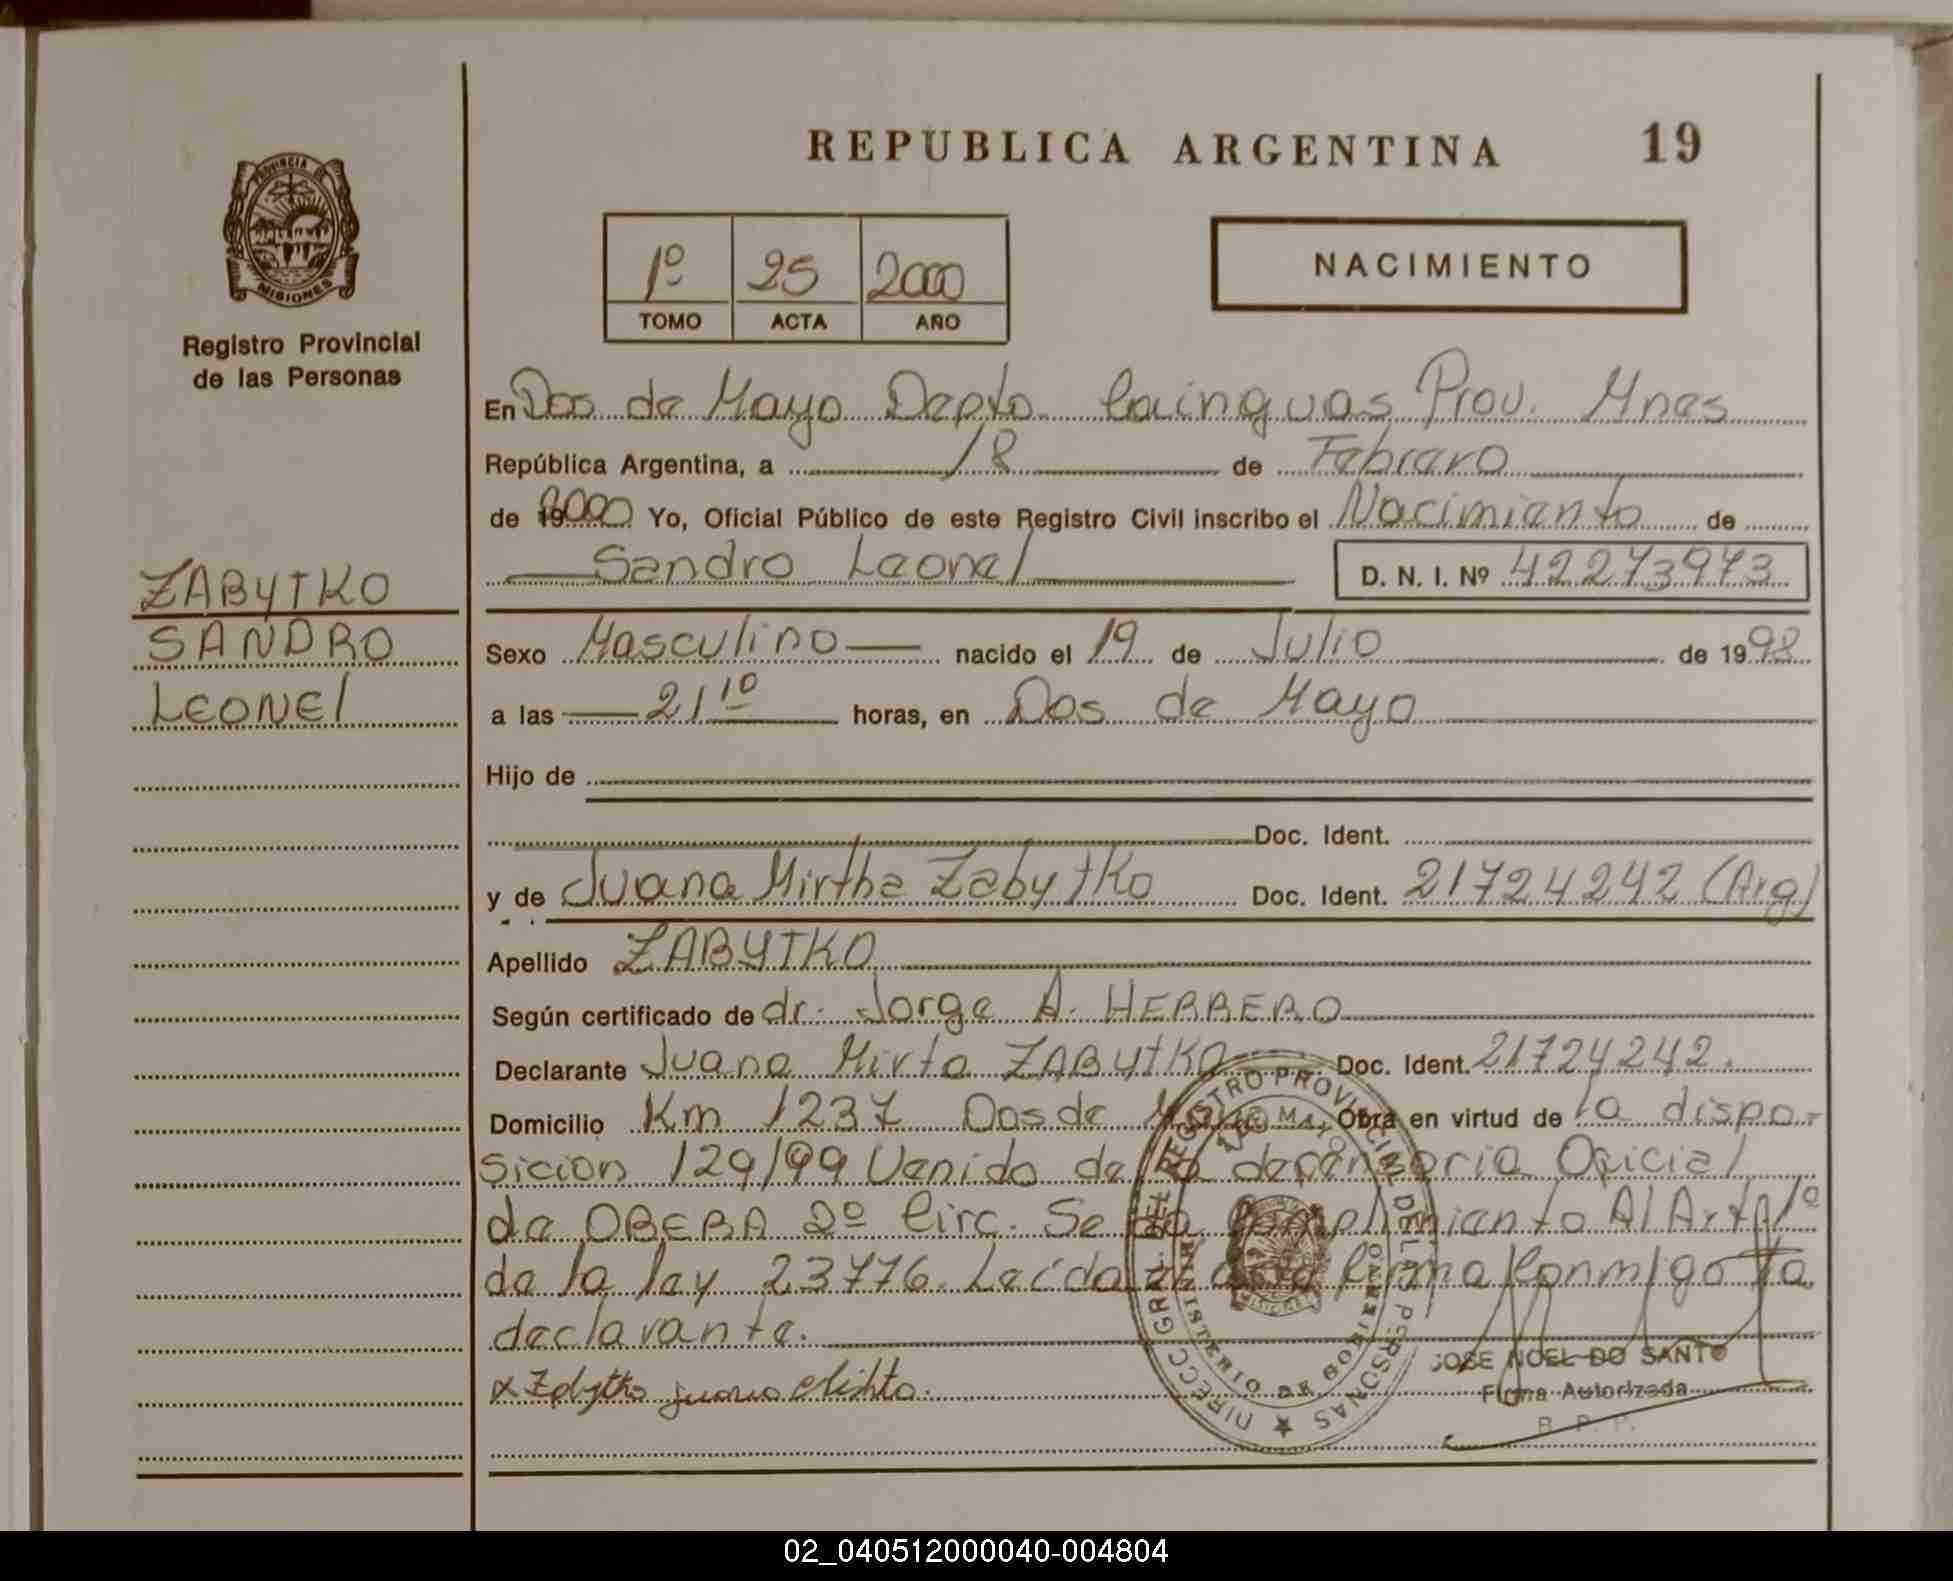 REPUBLICA ARGENTINA 19
PROVINCIA DE
MISIONES
Registro Provincial
de las Personas
1º 25 2000
TOMO ACTA AÑO
NACIMIENTO
En Dos de Mayo Depto Cainguas Prov. Mnes
República Argentina, a 18 de Febrero
de 2000 Yo, Oficial Público de este Registro Civil inscribo el Nacimiento de
Sandro Leonel D. N. I. Nº 42273973
ZABYTKO
SANDRO
LEONEl
Sexo Masculino nacido el 19 de Julio de 1998
a las 21 10 horas, en Dos de Mayo
Hijo de
Doc. Ident.
y de Juana Mirtha Zabytko Doc. Ident. 21724242 (Arg)
Apellido ZABYTKO
Según certificado de dr. Jorge A. HERRERO
Declarante Juana Mirta ZABYtKO Doc. Ident. 21724242.
Domicilio Km 1237 Dos de Mayo Obra en virtud de la dispo-
sicion 129/99 Venido de la defensoria Oficial
de OBERA 2º Circ. Se da Complimiento Al Art 1º
de la ley 23776. Leida el acta firma Conmigo la
declarante.
x Zabytko juana Mirta.
DIRECC GRAL. DEL REGISTRO PROVINCIAL DE LAS PERSONAS
MINISTERIO DE GOBIERNO
MISIONES
JOSE NOEL DO SANTO
Firma Autorizada
R. P. P.
02_040512000040-004804